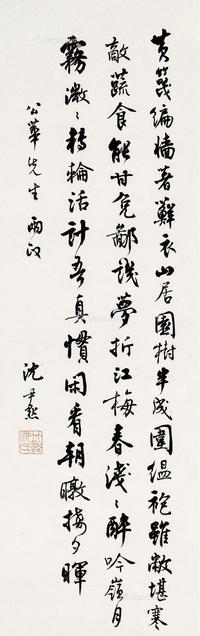 黄篾编墙著藓衣山居园树半成围缊袍虽敝堪寒
敵蔬食能甘免鄙讥梦折江梅春浅〻醉吟岭月
雾微〻转轮活计吾真惯闲看朝暾接夕晖
公华先生两政
沈尹默